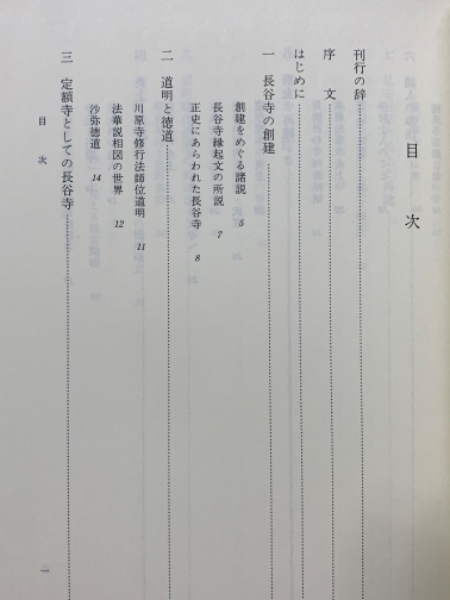 目次
刊行の辞
序文
はじめに
一 長谷寺の創建
創建をめぐる諸説 5
長谷寺縁起文の所説 7
正史にあらわれた長谷寺 8
二 道明と徳道
川原寺修行法師位道明 11
法華説相図の世界 12
沙弥徳道 14
三 定額寺としての長谷寺
目次